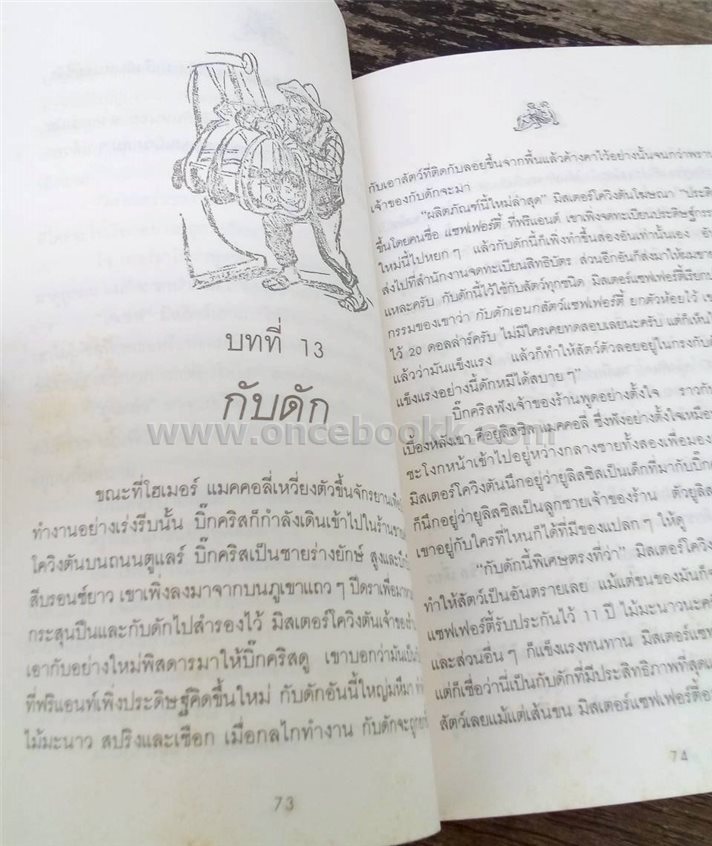 บทที่ 13
กับดัก
www.oncebookk.com
ขณะที่โฮเมอร์ แมคคอลี่เหวี่ยงตัวขึ้นจักรยาน
ทำงานอย่างเร่งรีบนั้น บิ๊กคริสก็กำลังเดินเข้าไปในร้าน
โควิงตันบนถนนตูแลร์ บิ๊กคริสเป็นชายร่างยักษ์ สูงและ
สีบรอนซ์ยาว เขาเพิ่งลงมาจากบนภูเขาแถว ๆ ปีดราเพื่อมา
กระสุนปืนและกับดักไปสำรองไว้ มิสเตอร์โควิงตันเจ้าของ
เอากับอย่างใหม่พิสดารมาให้บิ๊กคริสดู เขาบอกว่ามันเป็น
ที่ฟริแอนท์เพิ่งประดิษฐ์คิดขึ้นใหม่ กับดักอันนี้ใหญ่มหึมา
ไม้มะนาว สปริงและเชือก เมื่อกลไกทำงาน กับดักจะ
73
กับเอาสัตว์ที่ติดกับลอยขึ้นจากพื้นแล้วค้างคาไว้อย่างนั้นจนกว่าพราน
เจ้าของกับดักจะมา
"ผลิตภัณฑ์นี้ใหม่ล่าสุด" มิสเตอร์โควิงตันโฆษณา "ประดิ
ขึ้นโดยคนชื่อ แซฟเฟอร์ตี้ ที่ฟริแอนต์ เขาเพิ่งจดทะเบียนประดิษฐ์กรร
ใหม่นี้ไปหยก ๆ แล้วกับดักนี้ก็เพิ่งทำขึ้นสองอันเท่านั้นเอง อัน
ส่งไปที่สำนักงานจดทะเบียนสิทธิบัตร ส่วนอีกอันก็ส่งมาให้ผมขาย
แหละครับ กับดักนี้ไว้ใช้กับสัตว์ทุกชนิด มิสเตอร์แซฟเฟอร์ตี้เรียก
กรรมของเขาว่า กับดักเอนกสัตว์แซฟเฟอร์ตี้ ยกตัวห้อยไว้ เข
ไว้ 20 ดอลล่าร์ครับ ไม่มีใครเคยทดสอบเลยนะครับ แต่ก็เห็น
แล้วว่ามันแข็งแรง แล้วก็ทำให้สัตว์ตัวลอยอยู่ในกรงกับดั
แข็งแรงอย่างนี้ดักหมีได้สบาย ๆ"
บิ๊กคริสฟังเจ้าของร้านพูดอย่างตั้งใจ ราวกับ
เบื้องหลังเขา คือยูลิสซิส แมคคอลี่ ซึ่งฟังอย่างตั้งใจเหมือ
ชะโงกหน้าเข้าไปอยู่หว่างกลางชายทั้งสองเพื่อมอง
มิสเตอร์โควิงตันนึกอยู่ว่ายูลิสซิสเป็นเด็กที่มากับบิ๊ก
ก็นึกอยู่ว่ายูลิสซิสเป็นลูกชายเจ้าของร้าน ตัวยูลิส
เขาอยู่กับใครที่ไหนก็ได้ที่มีของแปลก ๆ ให้ดู
"กับดักนี้พิเศษตรงที่ว่า" มิสเตอร์โควิง
ทำให้สัตว์เป็นอันตรายเลย แม้แต่ขนของมันก็จ
แซฟเฟอร์ตี้รับประกันไว้ 11 ปี ไม้มะนาวนะครั
และส่วนอื่น ๆ ก็แข็งแรงทนทาน มิสเตอร์แซฟ
แต่ก็เชื่อว่านี่เป็นกับดักที่มีประสิทธิภาพที่สุด
สัตว์เลยแม้แต่เส้นขน มิสเตอร์แซฟเฟอร์ตี้
74